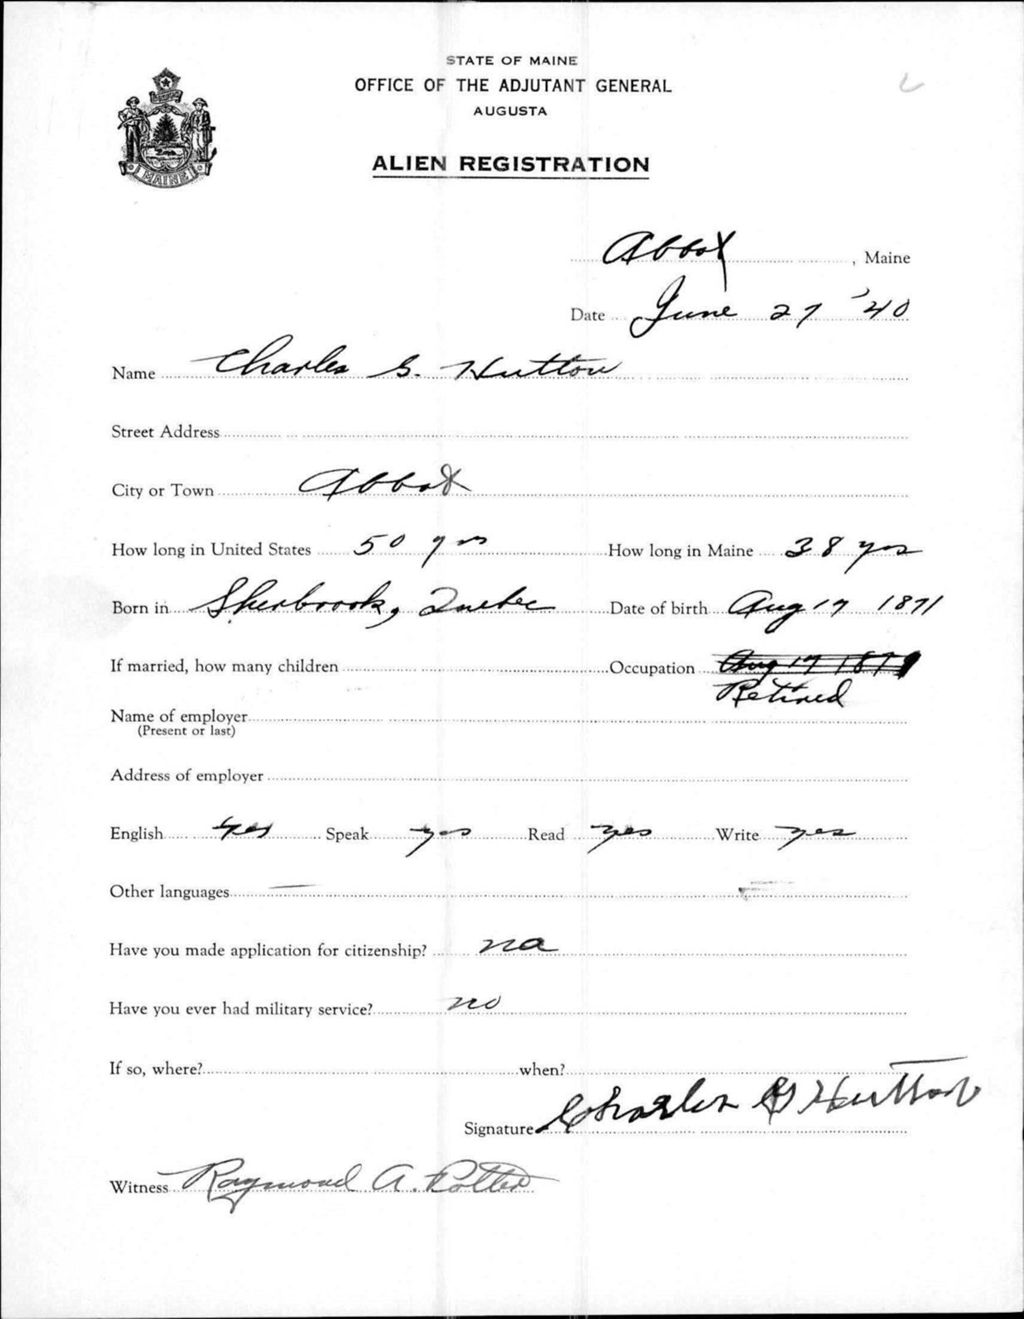 STATE OF MAINE
OFFICE OF THE ADJUTANT GENERAL
AUGUSTA
ALIEN REGISTRATION
MAINE
Abbot, Maine
Date June 27 '40
Name Charles G. Hutton
Street Address
City or Town Abbot
How long in United States 50 yrs How long in Maine 38 yrs
Born in Sherbrook, Quebec Date of birth Aug 17 1871
If married, how many children Occupation Aug 17 1871
Retired
Name of employer
(Present or last)
Address of employer
English Yes Speak yes Read yes Write yes
Other languages —
Have you made application for citizenship? no
Have you ever had military service? no
If so, where? when?
Signature Charles G Hutton
Witness Raymond A.